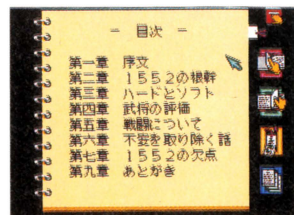 － 目次 －
第一章 序文
第二章 １５５２の根幹
第三章 ハードとソフト
第四章 武将の評価
第五章 戦闘について
第六章 不安を取り除く話
第七章 １５５２の欠点
第九章 あとがき